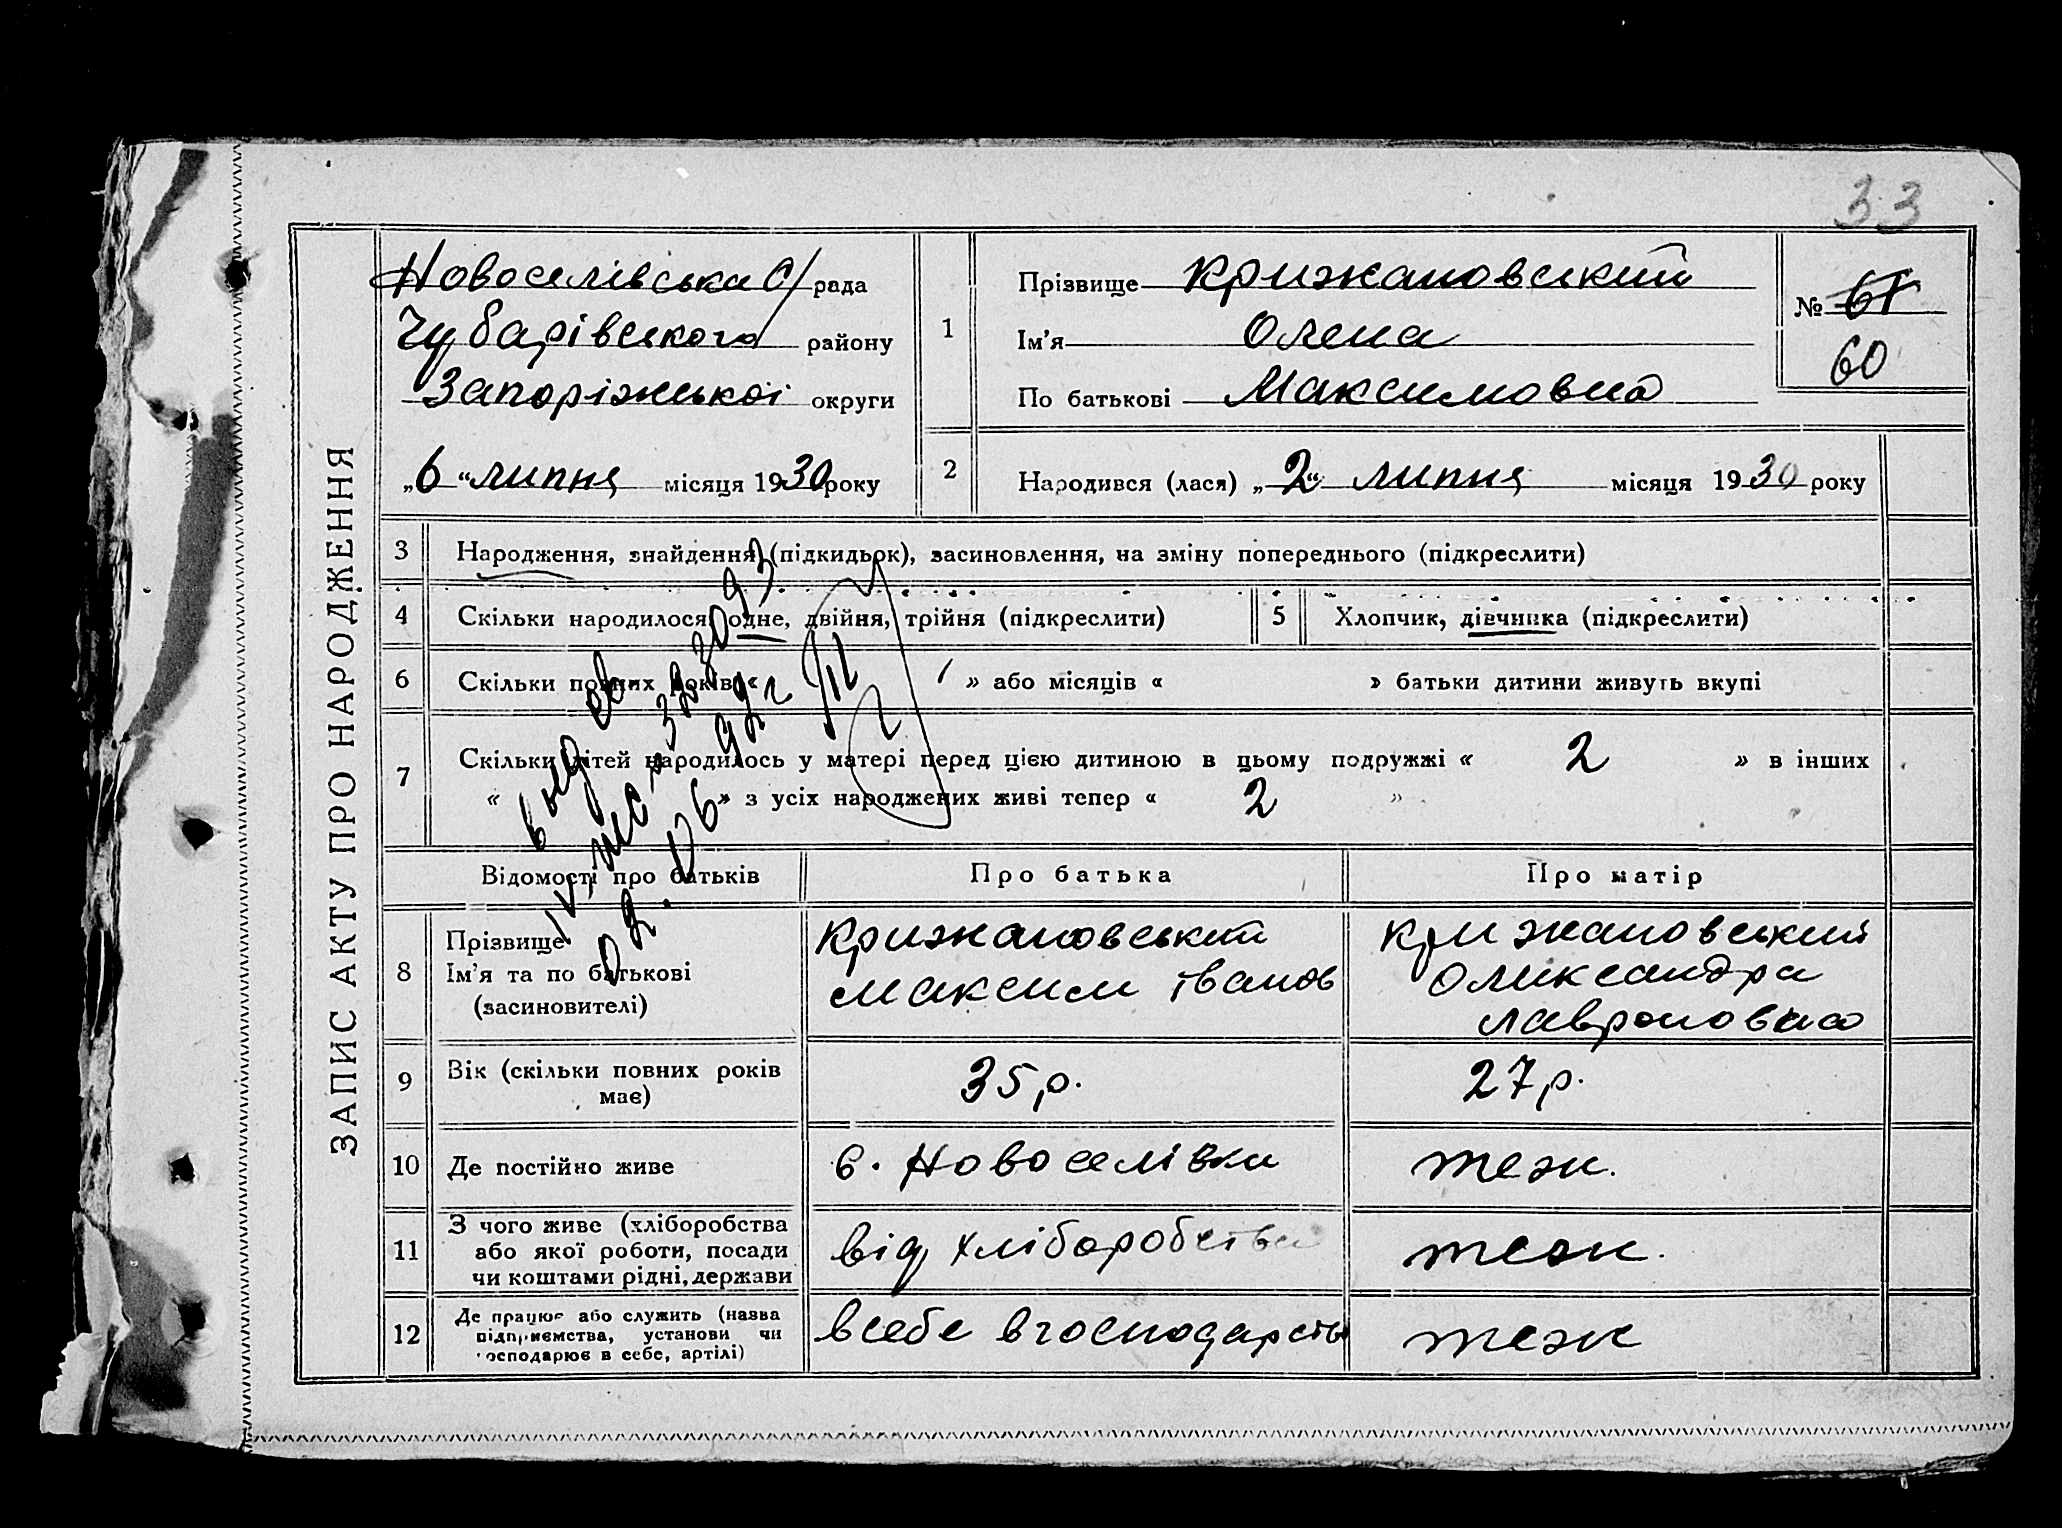 33
ЗАПИС АКТУ ПРО НАРОДЖЕННЯ
Новоселівська С/рада
Чубарівського району
Запоріжської округи
„6“ липня місяця 1930 року
1
Прізвище Крижановський
Ім'я Олена
По батькові Максимовна
№ 61
60
2
Народився (лася) „2“ липня місяця 1930 року
3 Народження, знайдення (підкидьок), засиновлення, на зміну попереднього (підкреслити)
4 Скільки народилося одне, двійня, трійня (підкреслити)
5 Хлопчик, дівчинка (підкреслити)
6 Скільки повних років « » або місяців « » батьки дитини живуть вкупі
7 Скільки дітей народилось у матері перед цією дитиною в цьому подружжі « 2 » в інших
« » з усіх народжених живі тепер « 2 »
Відомості про батьків Про батька Про матір
8 Прізвище
Ім'я та по батькові
(засиновителі)
Крижановський
Максим Іванов
Крижановський
Олександра
Лавроновна
9 Вік (скільки повних років
має)
35 р. 27 р.
10 Де постійно живе с. Новоселівка теж.
11 З чого живе (хліборобства
або якої роботи, посади
чи коштами рідні, держави
від хліборобства теж.
12 Де працює або служить (назва
підприємства, установи чи
господарює в себе, артілі)
в себе в господарстві теж